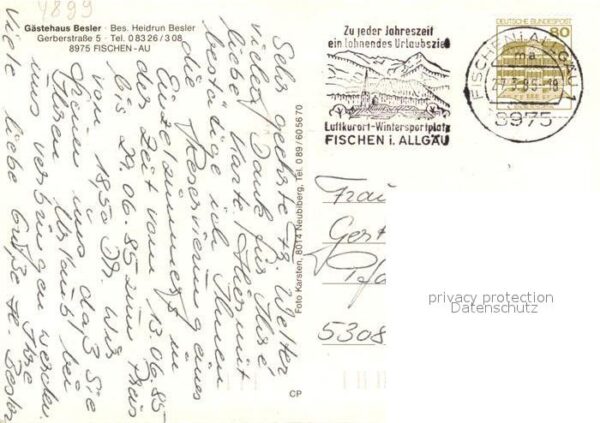 4899
Gästehaus Besler · Bes. Heidrun Besler
Gerberstraße 5 · Tel. 0 83 26 / 3 08
8975 FISCHEN - AU
Sehr geehrte Fr. Welter
vielen Dank für Ihre
liebe Karte. Hiermit
bestätige ich Ihnen
die Reservierung eines
Einzelzimmers in
der Zeit vom 13.06.85
bis 29.06.85 zum Preis
von 18,50 DM. Wir
freuen uns daß Sie
Ihren Urlaub bei
uns verbringen werden.
Viele liebe Grüße Ihre
H. Besler
Foto Karsten, 8014 Neubiberg, Tel. 0 89 / 60 56 70
CP
Zu jeder Jahreszeit
ein lohnendes Urlaubsziel
Luftkurort-Wintersportplatz
FISCHEN i. ALLGÄU
DEUTSCHE BUNDESPOST
80
FISCHEN i. ALLGÄU
ma
8975
Frau
5308
privacy protection
Datenschutz